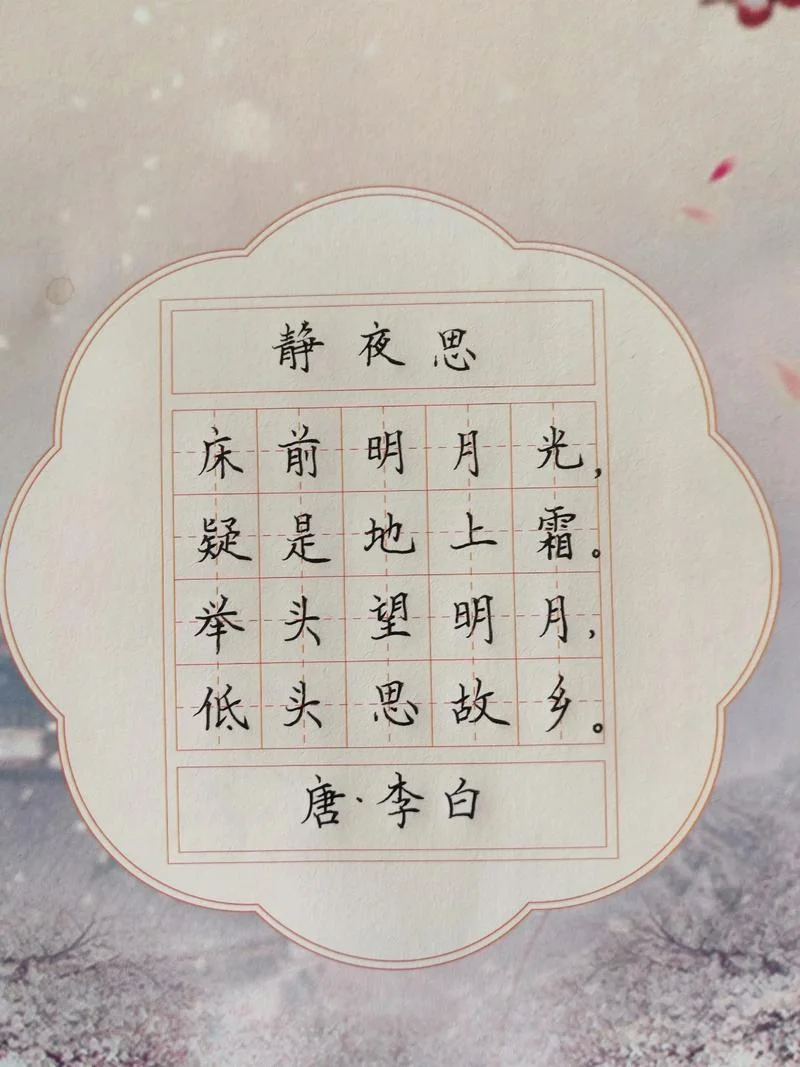 静夜思
床前明月光，
疑是地上霜。
举头望明月，
低头思故乡。
唐·李白